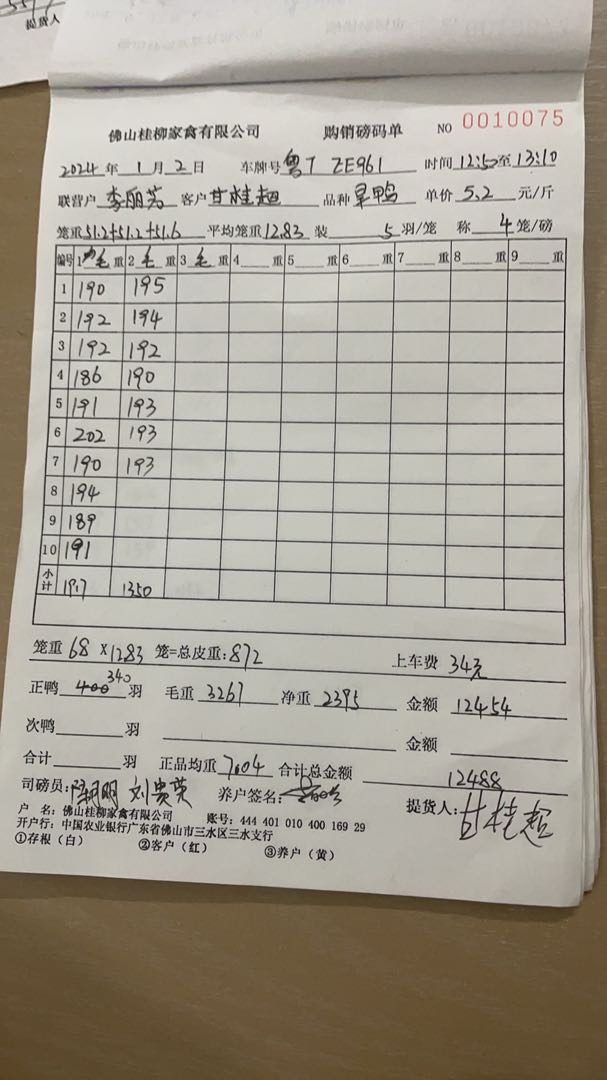 提货人
佛山桂柳家禽有限公司 购销磅码单 NO 0010075
2024年1月2日 车牌号 粤T ZE961 时间 12:50至13:10
联营户 李丽芳 客户 甘桂超 品种 旱鸭 单价 5.2 元/斤
笼重 51.2+51.2+51.6 平均笼重 12.83 装 5 羽/笼 称 4 笼/磅
编号 1 毛 重 2 毛 重 3 毛 重 4 重 5 重 6 重 7 重 8 重 9 重
1 190 195
2 192 194
3 192 192
4 186 190
5 191 193
6 202 193
7 190 193
8 194
9 189
10 191
小计 1917 1350
笼重 68 × 12.83 笼=总皮重: 872 上车费 34元
正鸭 400 340 羽 毛重 3267 净重 2395 金额 12454
次鸭 羽 金额
合计 羽 正品均重 7.04 合计总金额 12488
司磅员: 明 刘贵英 养户签名: 提货人: 甘桂超
户 名: 佛山桂柳家禽有限公司 账号: 444 401 010 400 169 29
开户行: 中国农业银行广东省佛山市三水区三水支行
①存根（白） ②客户（红） ③养户（黄）